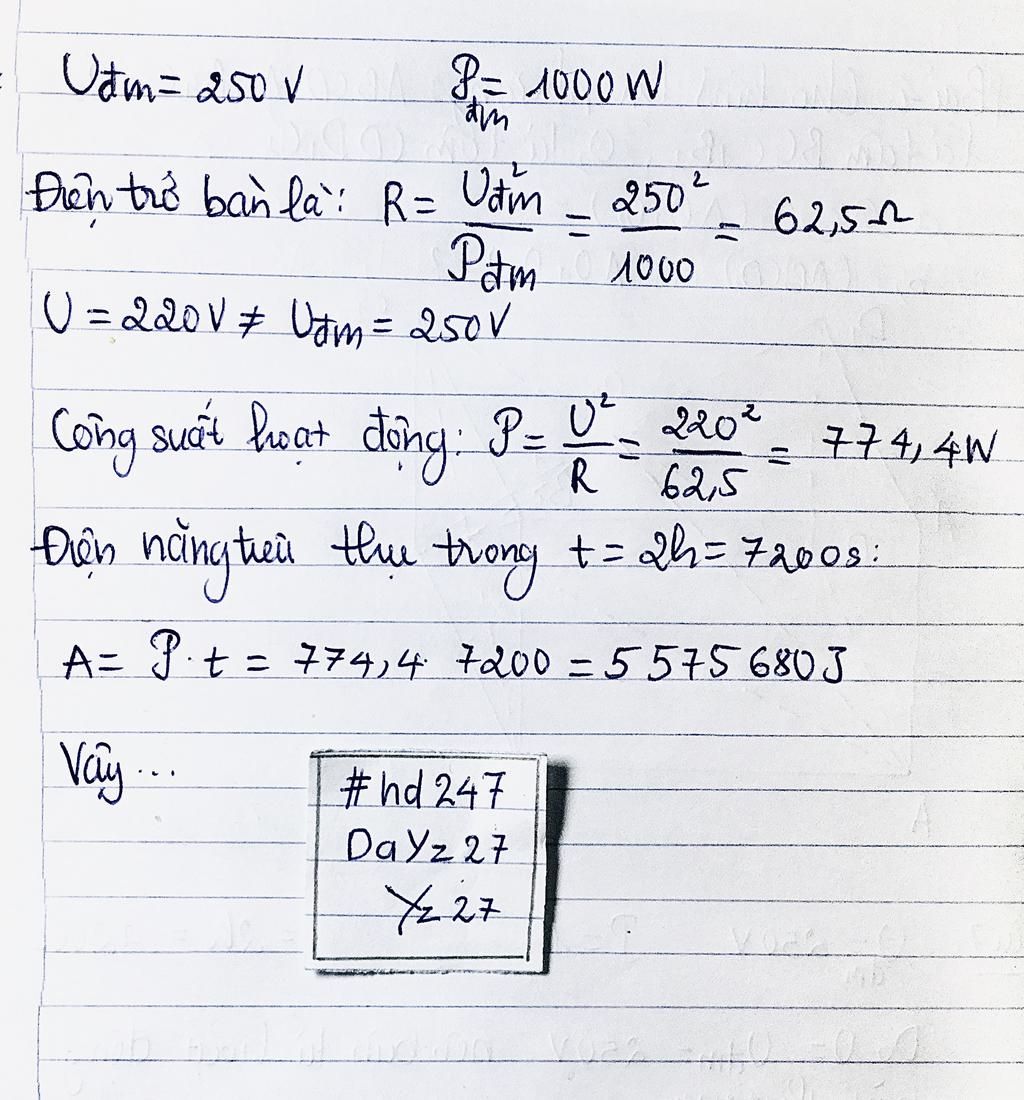 Uđm = 250 V P đm = 1000 W
Điện trở bàn là: R = Uđm² / Pđm = 250² / 1000 = 62,5 Ω
U = 220V ≠ Uđm = 250V
Công suất hoạt động: P = U² / R = 220² / 62,5 = 774,4W
Điện năng tiêu thụ trong t = 2h = 7200s:
A = P. t = 774,4. 7200 = 5 575 680J
Vậy...
#hd247
DaYz27
Yz27